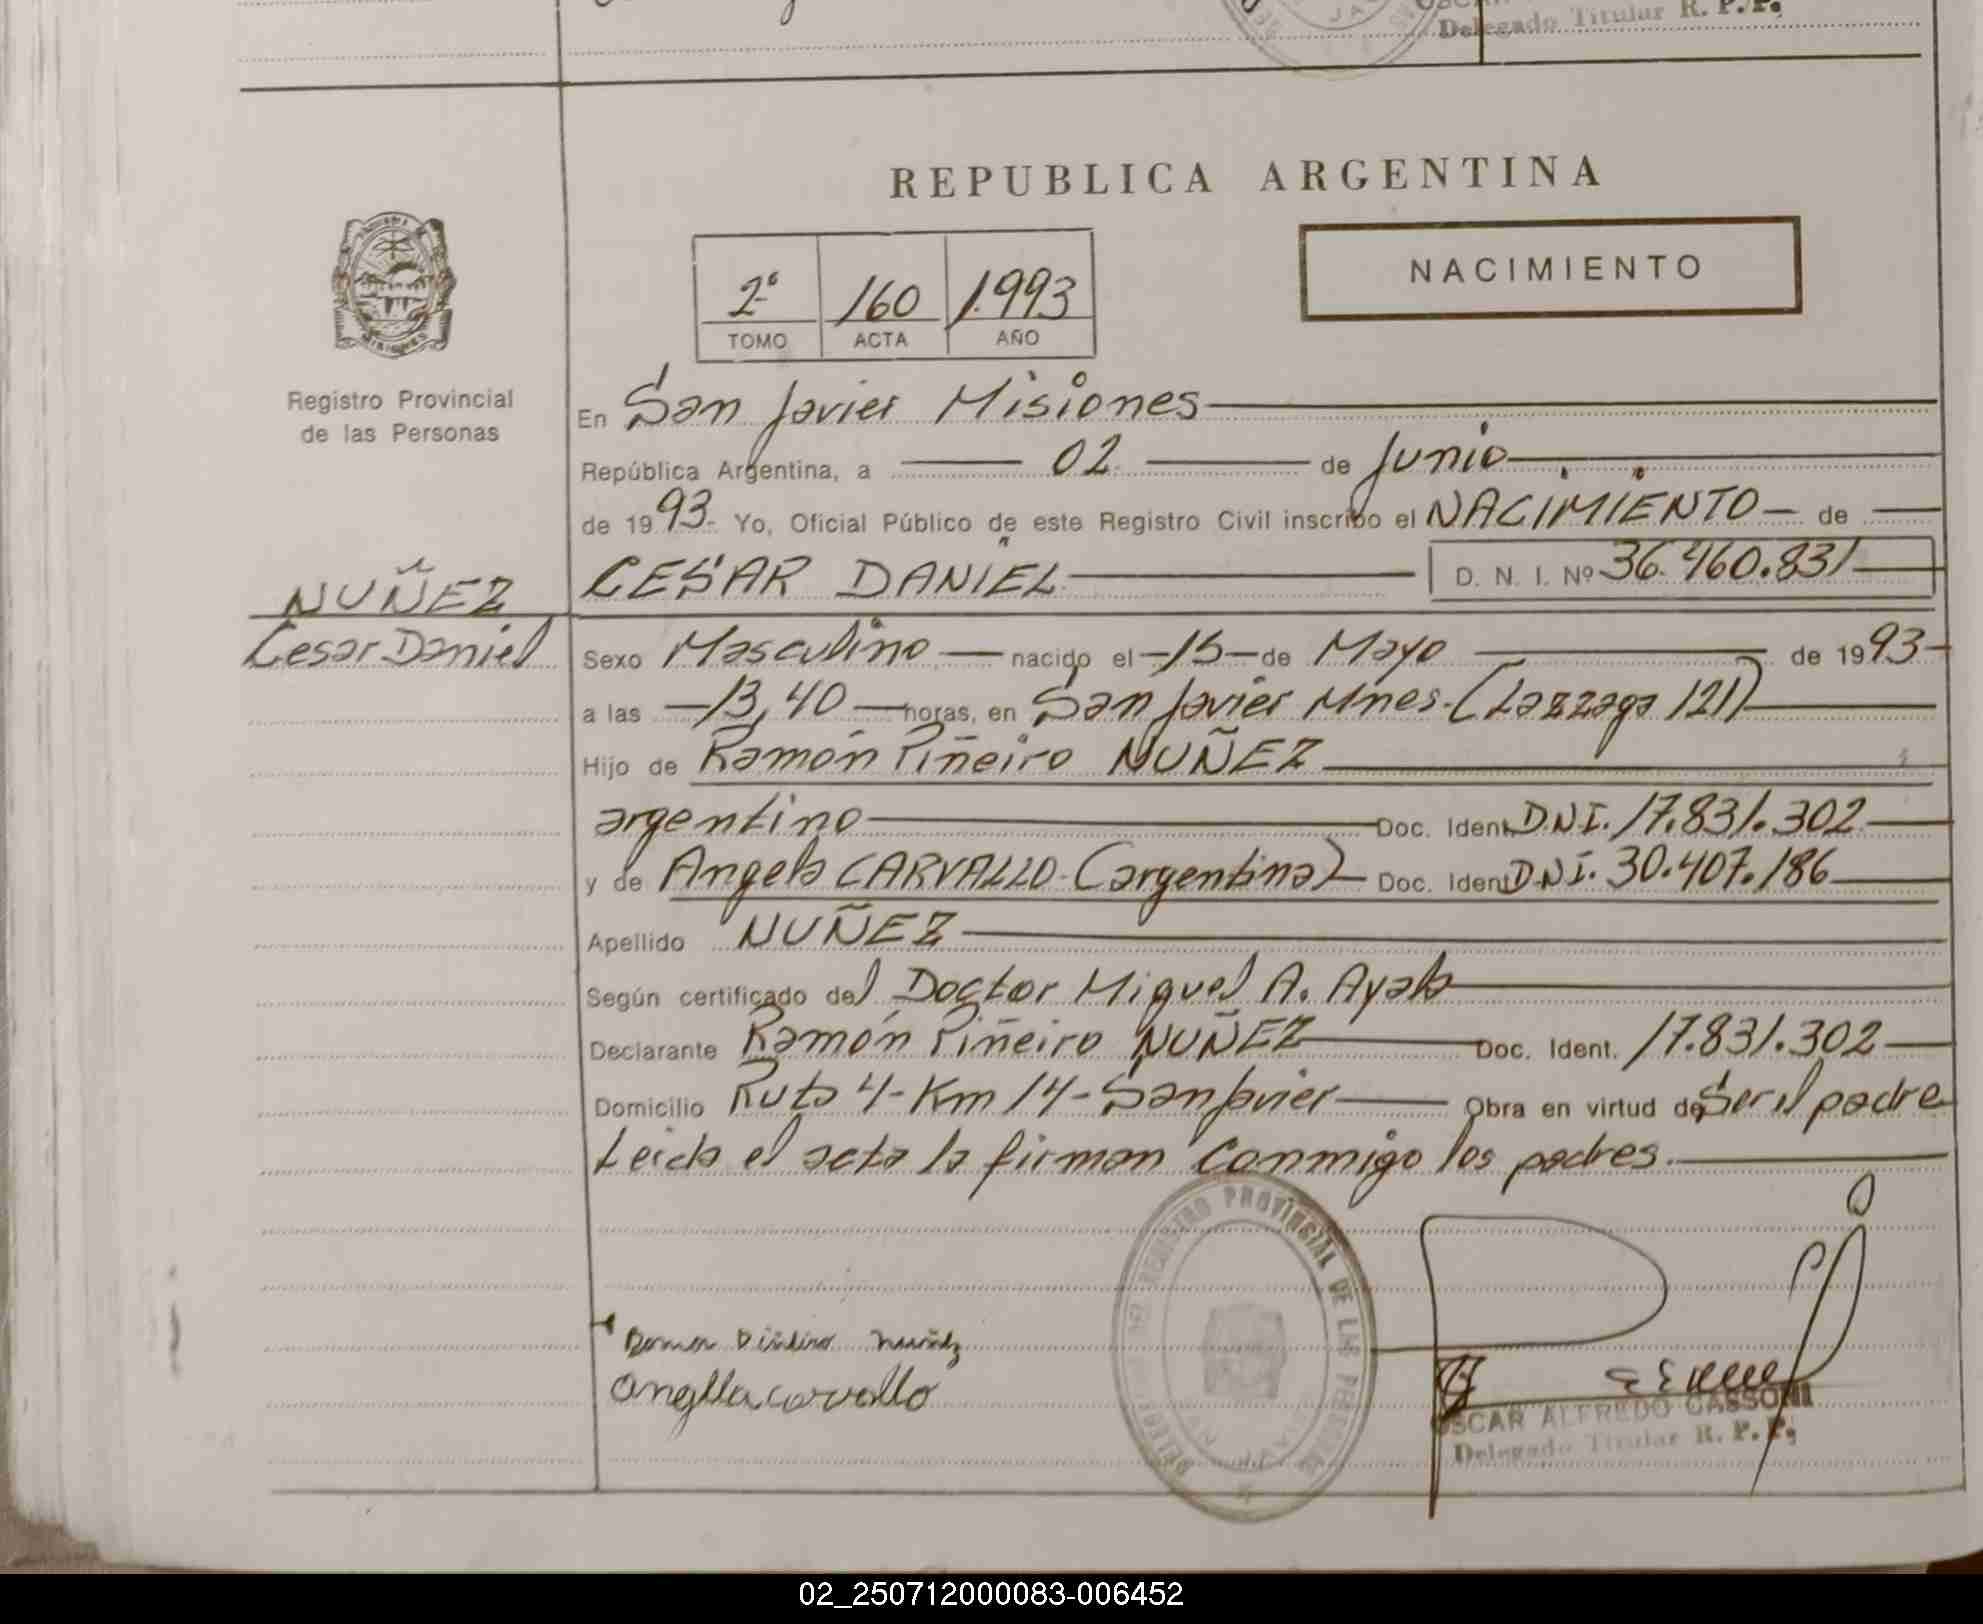 Delegado Titular R. P. P.
REPUBLICA ARGENTINA
NACIMIENTO
2º 160 1.993
TOMO ACTA AÑO
Registro Provincial
de las Personas
En San Javier Misiones
República Argentina, a 02 de Junio
de 1993- Yo, Oficial Público de este Registro Civil inscribo el NACIMIENTO - de
CESAR DANIEL D. N. I. Nº 36.460.831
NUÑEZ
Cesar Daniel
Sexo Masculino nacido el -15- de Mayo de 1993-
a las -13,40- horas, en San Javier Mnes. (Lazzaga 121)
Hijo de Ramón Piñeiro NUÑEZ
argentino Doc. Ident. D.N.I. 17.831.302
y de Angela CARVALLO - (argentina) Doc. Ident. D.N.I. 30.407.186
Apellido NUÑEZ
Según certificado del Doctor Miguel A. Ayala
Declarante Ramón Piñeiro NUÑEZ Doc. Ident. 17.831.302
Domicilio Ruta 4 - Km 14 - San Javier Obra en virtud de Ser el padre
Leida el acta la firman conmigo los padres.
REGISTRO PROVINCIAL DE LAS PERSONAS
angella carvallo
OSCAR ALFREDO CASSONI
Delegado Titular R. P. P.
02_250712000083-006452